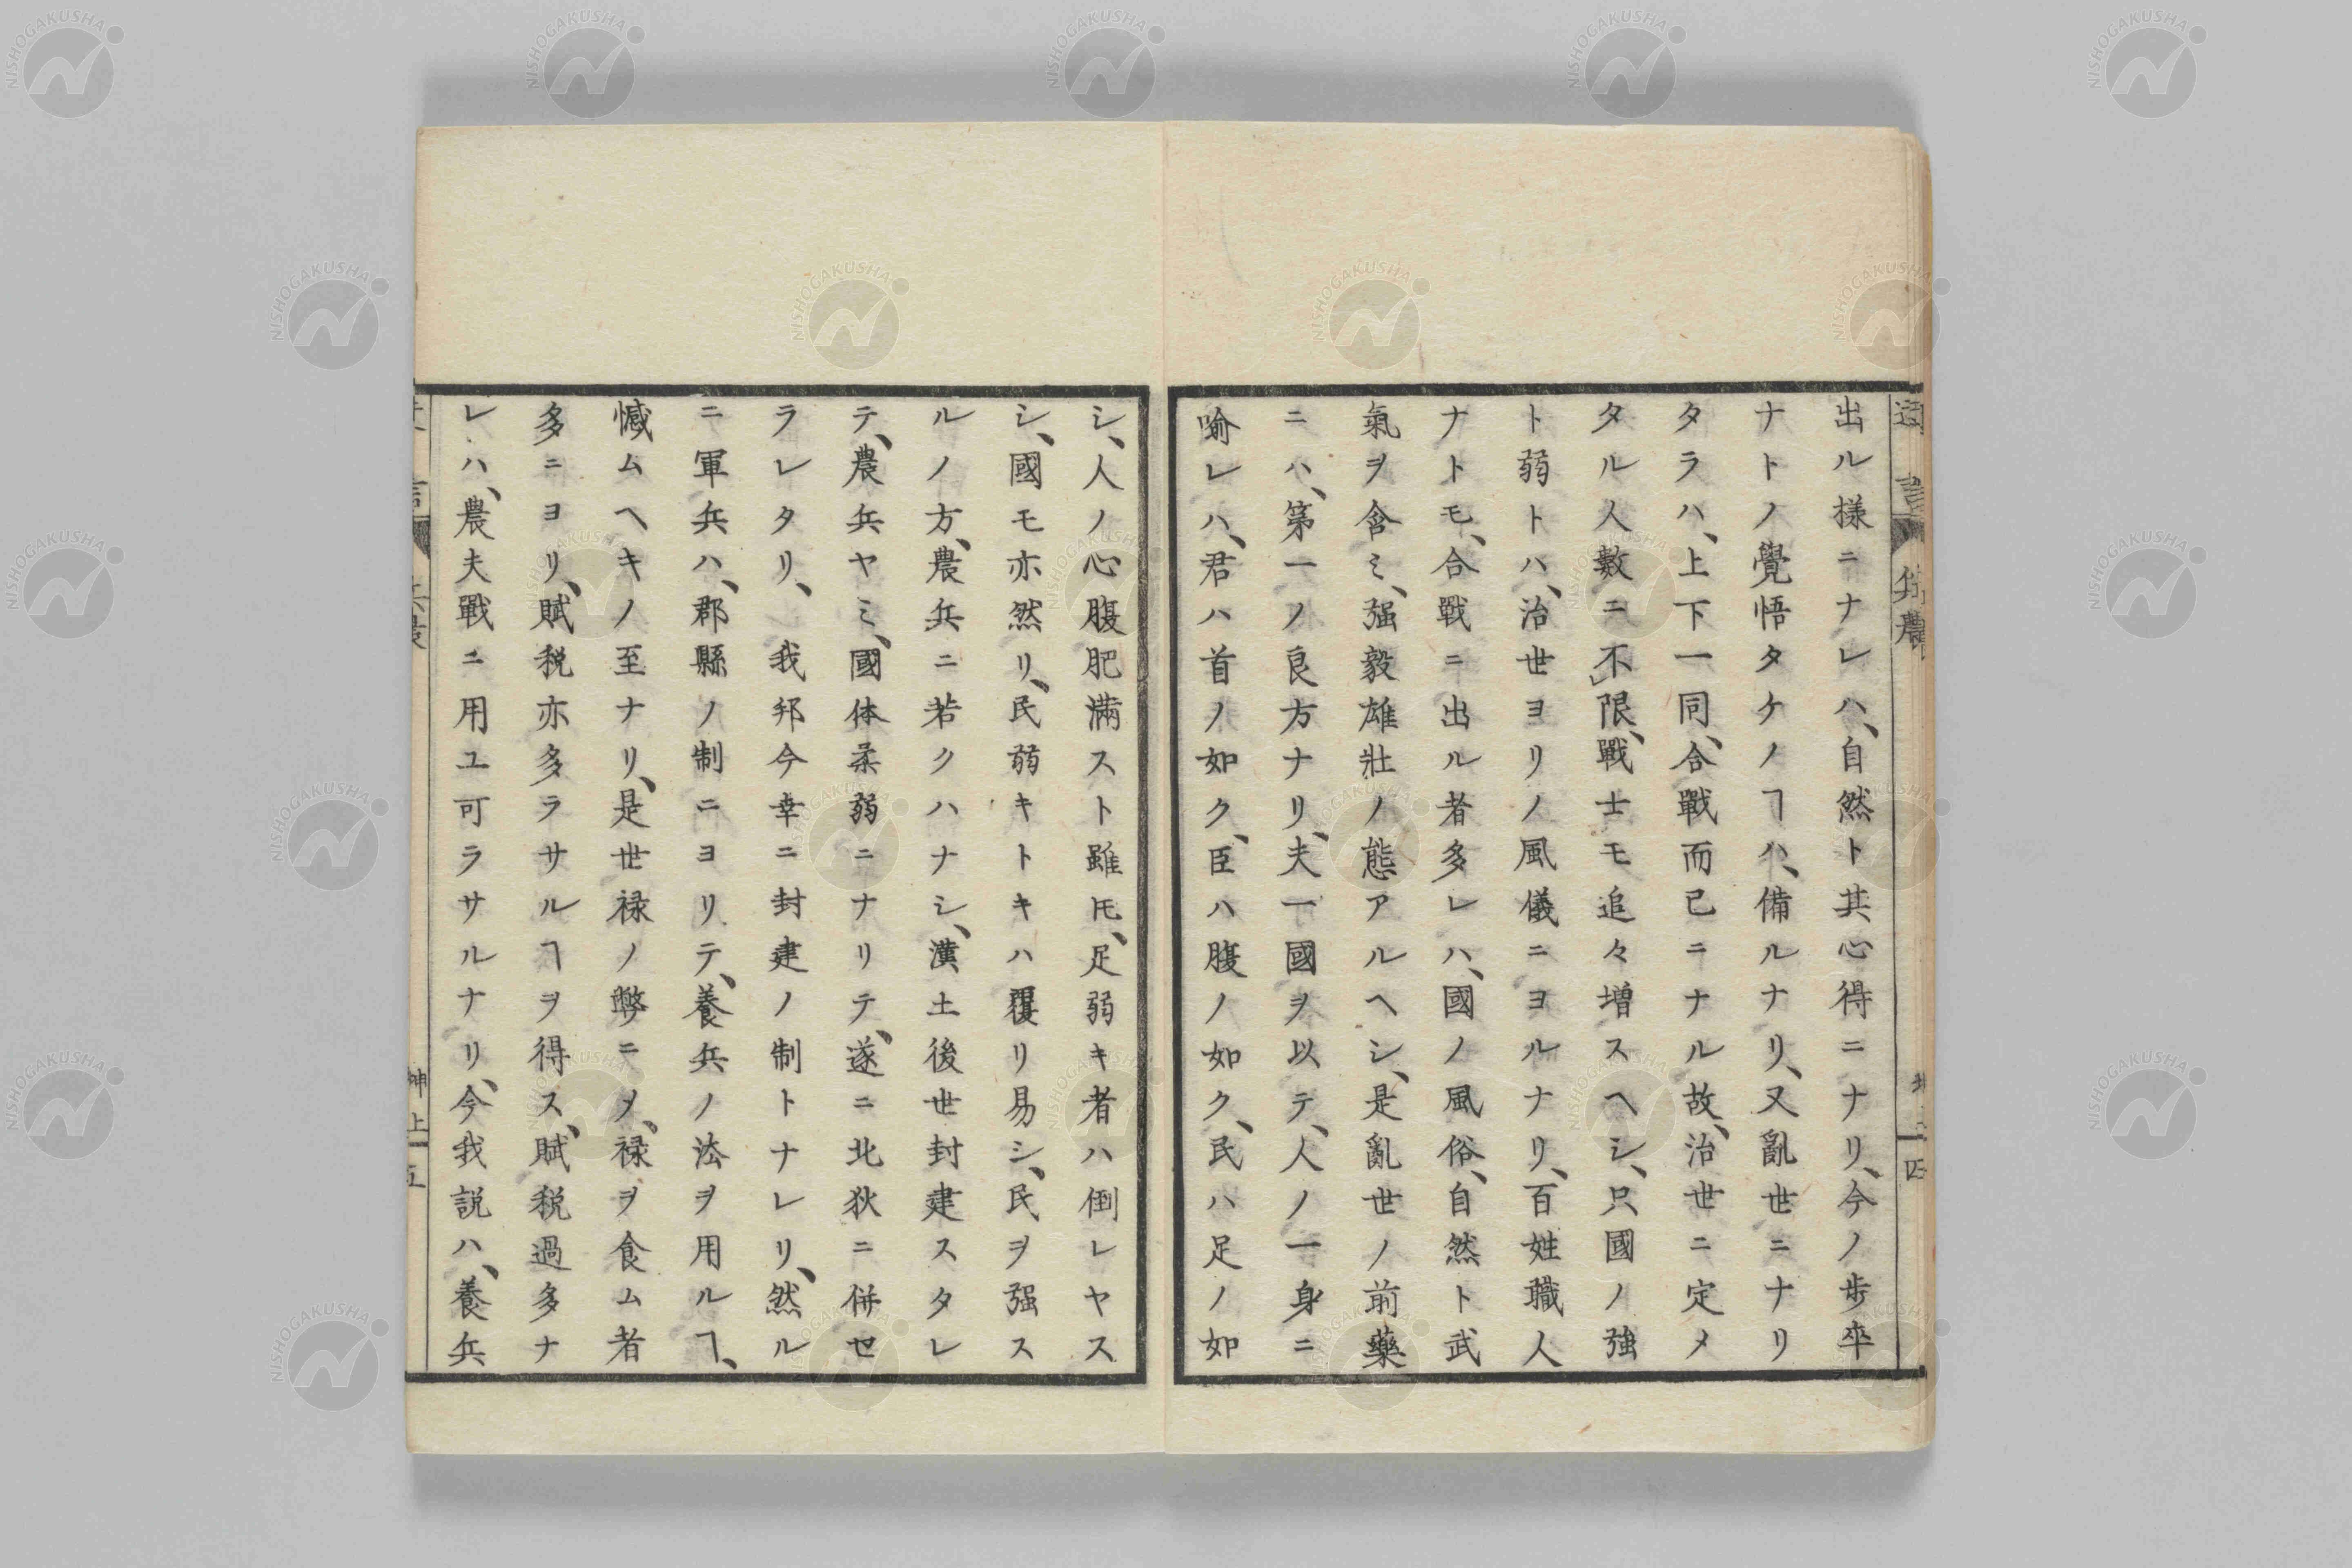 出ル様ニナレハ、自然ト其心得ニナリ、今ノ歩卒
ナトノ覺悟タケノヿハ、備ルナリ、又亂世ニナリ
タラハ、上下一同、合戰而已ニナル故、治世ニ定メ
タル人數ニ不レ限、戰士モ追々増スヘシ、只國ノ強
ト弱トハ、治世ヨリノ風儀ニヨルナリ、百姓職人
ナトモ、合戰ニ出ル者多レハ、國ノ風俗、自然ト武
氣ヲ含ミ、强毅雄壯ノ態アルヘシ、是亂世ノ前藥
ニハ、第一ノ良方ナリ、夫一國ヲ以テ、人ノ一身ニ
喩レハ、君ハ首ノ如ク、臣ハ腹ノ如ク、民ハ足ノ如
シ、人ノ心腹肥滿スト雖𪜈、足弱キ者ハ倒レヤス
シ、國モ亦然リ、民弱キトキハ覆リ易シ、民ヲ强ス
ルノ方、農兵ニ若クハナシ、漢土後世封建スタレ
テ、農兵ヤミ、國体柔弱ニナリテ、遂ニ北狄ニ併セ
ラレタリ、我邦今幸ニ封建ノ制トナレリ、然ル
ニ軍兵ハ、郡縣ノ制ニヨリテ、養兵ノ法ヲ用ルヿ、
憾ムヘキノ至ナリ、是世禄ノ弊ニメ、禄ヲ食ム者
多ニヨリ、賦税亦多ラサルヿヲ得ス、賦税過多ナ
レハ、農夫戰ニ用ユ可ラサルナリ、今我説ハ、養兵
NISHOGAKUSHA